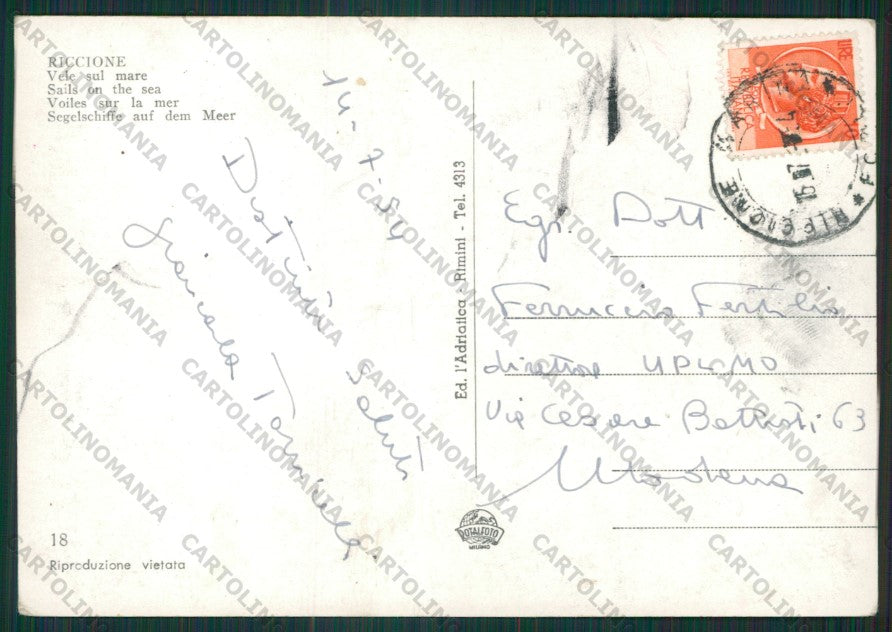 RICCIONE
Vele sul mare
Sails on the sea
Voiles sur la mer
Segelschiffe auf dem Meer
14-7-54
Distinti saluti
Giancarla
18
Riproduzione vietata
Ed. l'Adriatica - Rimini - Tel. 4313
ROTALFOTO
MILANO
LIRE
RICCIONE
Egr. Dott
Ferruccio Fertilio
direttore UPLMO
Via Cesare Battisti 63
Modena
CARTOLINOMANIA